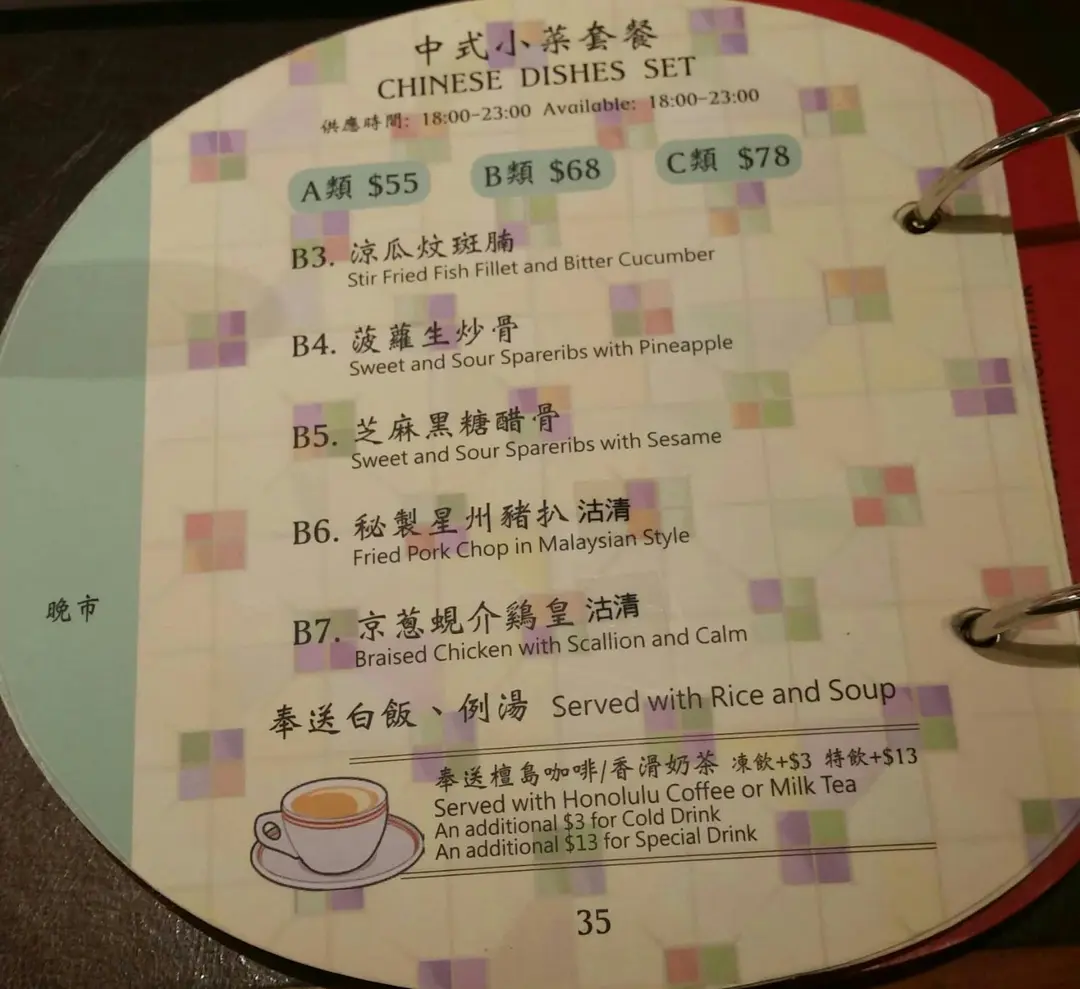 中式小菜套餐
CHINESE DISHES SET
供應時間: 18:00-23:00 Available: 18:00-23:00
A類 $55 B類 $68 C類 $78
B3. 涼瓜炆斑腩
Stir Fried Fish Fillet and Bitter Cucumber
B4. 菠蘿生炒骨
Sweet and Sour Spareribs with Pineapple
B5. 芝麻黑糖醋骨
Sweet and Sour Spareribs with Sesame
B6. 秘製星州豬扒 沽清
Fried Pork Chop in Malaysian Style
B7. 京蔥蜆介鷄皇 沽清
Braised Chicken with Scallion and Calm
晚市
奉送白飯、例湯 Served with Rice and Soup
奉送檀島咖啡/香滑奶茶 凍飲+$3 特飲+$13
Served with Honolulu Coffee or Milk Tea
An additional $3 for Cold Drink
An additional $13 for Special Drink
35